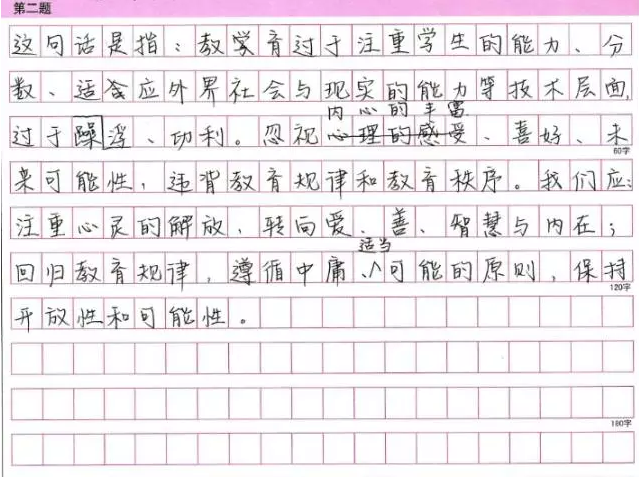 第二题
这句话是指：教育过于注重学生的能力、分
数、适应外界社会与现实的能力等技术层面，
过于躁浮、功利。忽视内心的丰富、喜好、未
60字
来可能性，违背教育规律和教育秩序。我们应：
注重心灵的解放，转向爱、善、智慧与内在；
回归教育规律，遵循中庸、适当、可能的原则，保持
120字
开放性和可能性。
180字